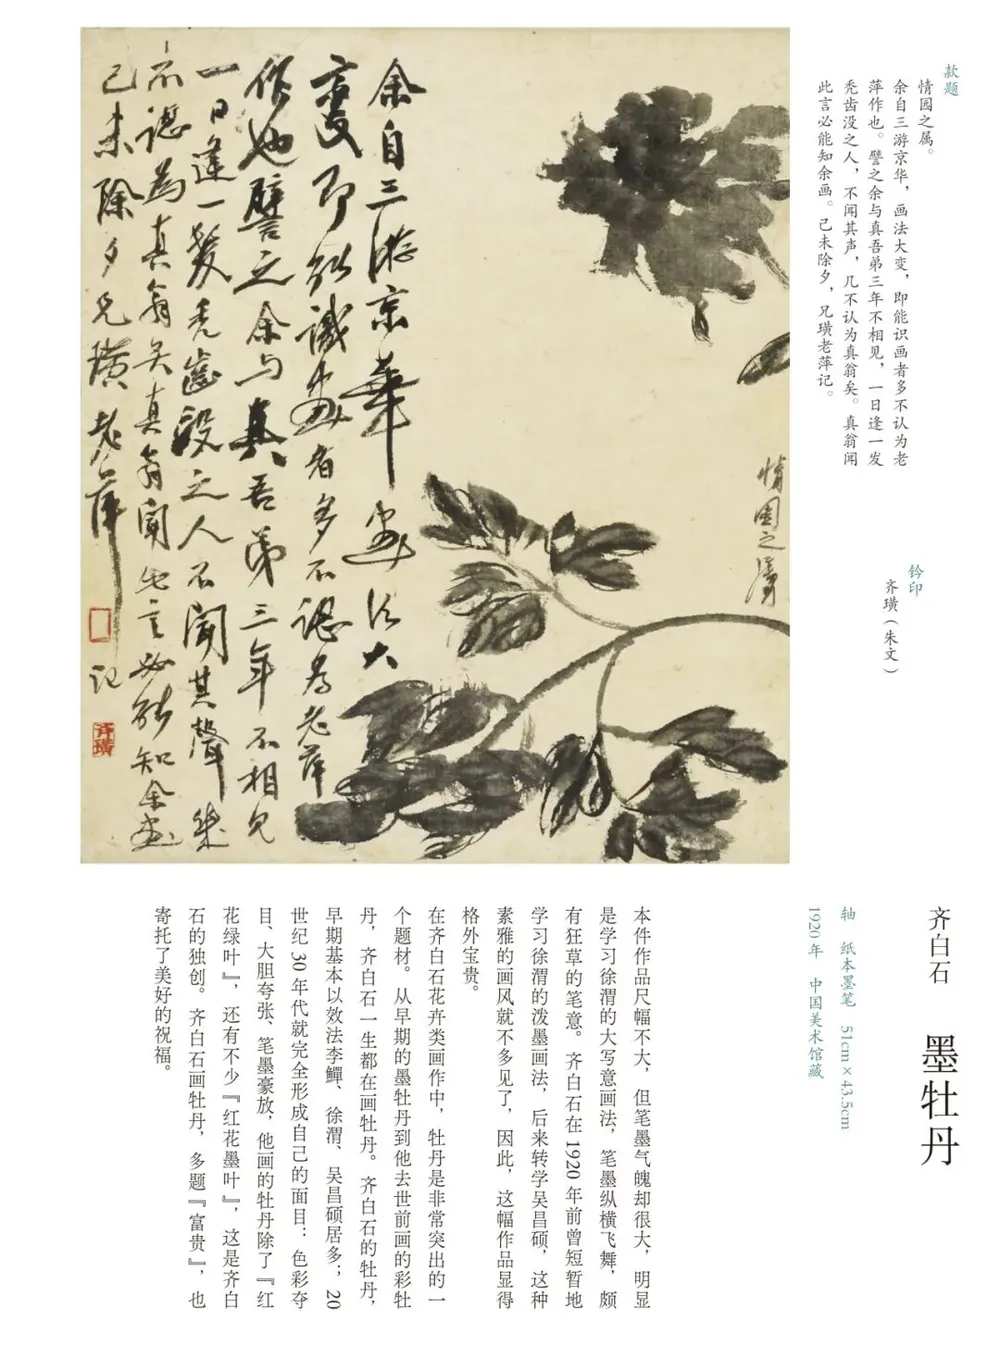 款题
情园之属。
余自三游京华，画法大变，即能识画者多不认为老
萍作也。譬之余与真吾弟三年不相见，一日逢一发
秃齿没之人，不闻其声，几不认为真翁矣。真翁闻
此言必能知余画。己未除夕，兄璜老萍记。
钤印
齐璜（朱文）
情园之属
余自三游京华画法大
变即能识画者多不认为老萍
作也譬之余与真吾弟三年不相见
一日逢一发秃齿没之人不闻其声几
不认为真翁矣真翁闻此言必能知余画
己未除夕兄璜老萍记
齐璜
齐白石 墨牡丹
轴 纸本墨笔 51cm×43.5cm
1920年 中国美术馆藏
本件作品尺幅不大，但笔墨气魄却很大，明显
是学习徐渭的大写意画法，笔墨纵横飞舞，颇
有狂草的笔意。齐白石在1920年前曾短暂地
学习徐渭的泼墨画法，后来转学吴昌硕，这种
素雅的画风就不多见了，因此，这幅作品显得
格外宝贵。
在齐白石花卉类画作中，牡丹是非常突出的一
个题材。从早期的墨牡丹到他去世前画的彩牡
丹，齐白石一生都在画牡丹。齐白石的牡丹，
早期基本以效法李鱓、徐渭、吴昌硕居多；20
世纪30年代就完全形成自己的面目：色彩夺
目、大胆夸张、笔墨豪放，他画的牡丹除了『红
花绿叶』，还有不少『红花墨叶』，这是齐白
石的独创。齐白石画牡丹，多题『富贵』，也
寄托了美好的祝福。